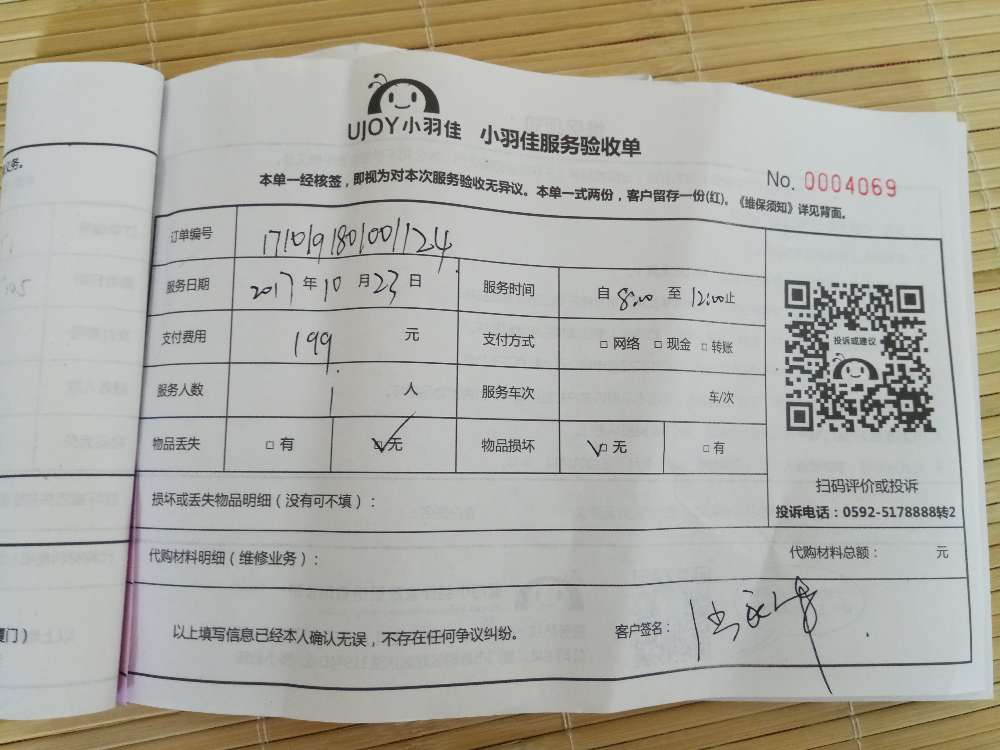 义务。
UJOY小羽佳 小羽佳服务验收单
No. 0004069
本单一经核签，即视为对本次服务验收无异议。本单一式两份，客户留存一份(红)。《维保须知》详见背面。
订单编号 171019180001124
服务日期 2017 年 10 月 23 日 服务时间 自 8:00 至 12:00止
支付费用 199 元 支付方式 □ 网络 □ 现金 □ 转账
服务人数 1 人 服务车次 车/次
物品丢失 □ 有 ☑ 无 物品损坏 ☑ 无 □ 有
投诉或建议
扫码评价或投诉
投诉电话：0592-5178888转2
损坏或丢失物品明细（没有可不填）：
代购材料明细（维修业务）： 代购材料总额： 元
以上填写信息已经本人确认无误，不存在任何争议纠纷。 客户签名：
厦门）